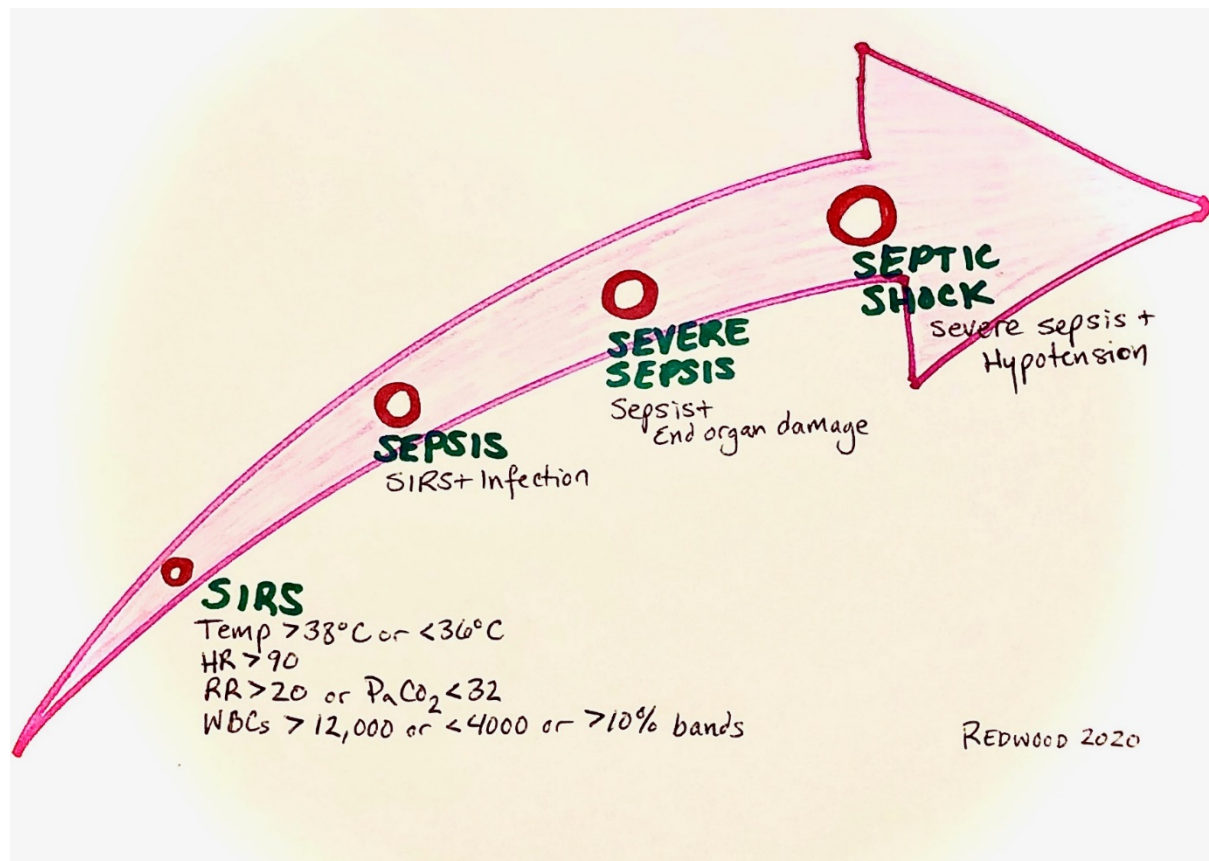 SIRS
Temp >38°C or <36°C
HR >90
RR >20 or PaCO₂ <32
WBCs > 12,000 or <4000 or >10% bands
SEPSIS
SIRS + Infection
SEVERE
SEPSIS
Sepsis +
End organ damage
SEPTIC
SHOCK
Severe sepsis +
Hypotension
REDWOOD 2020